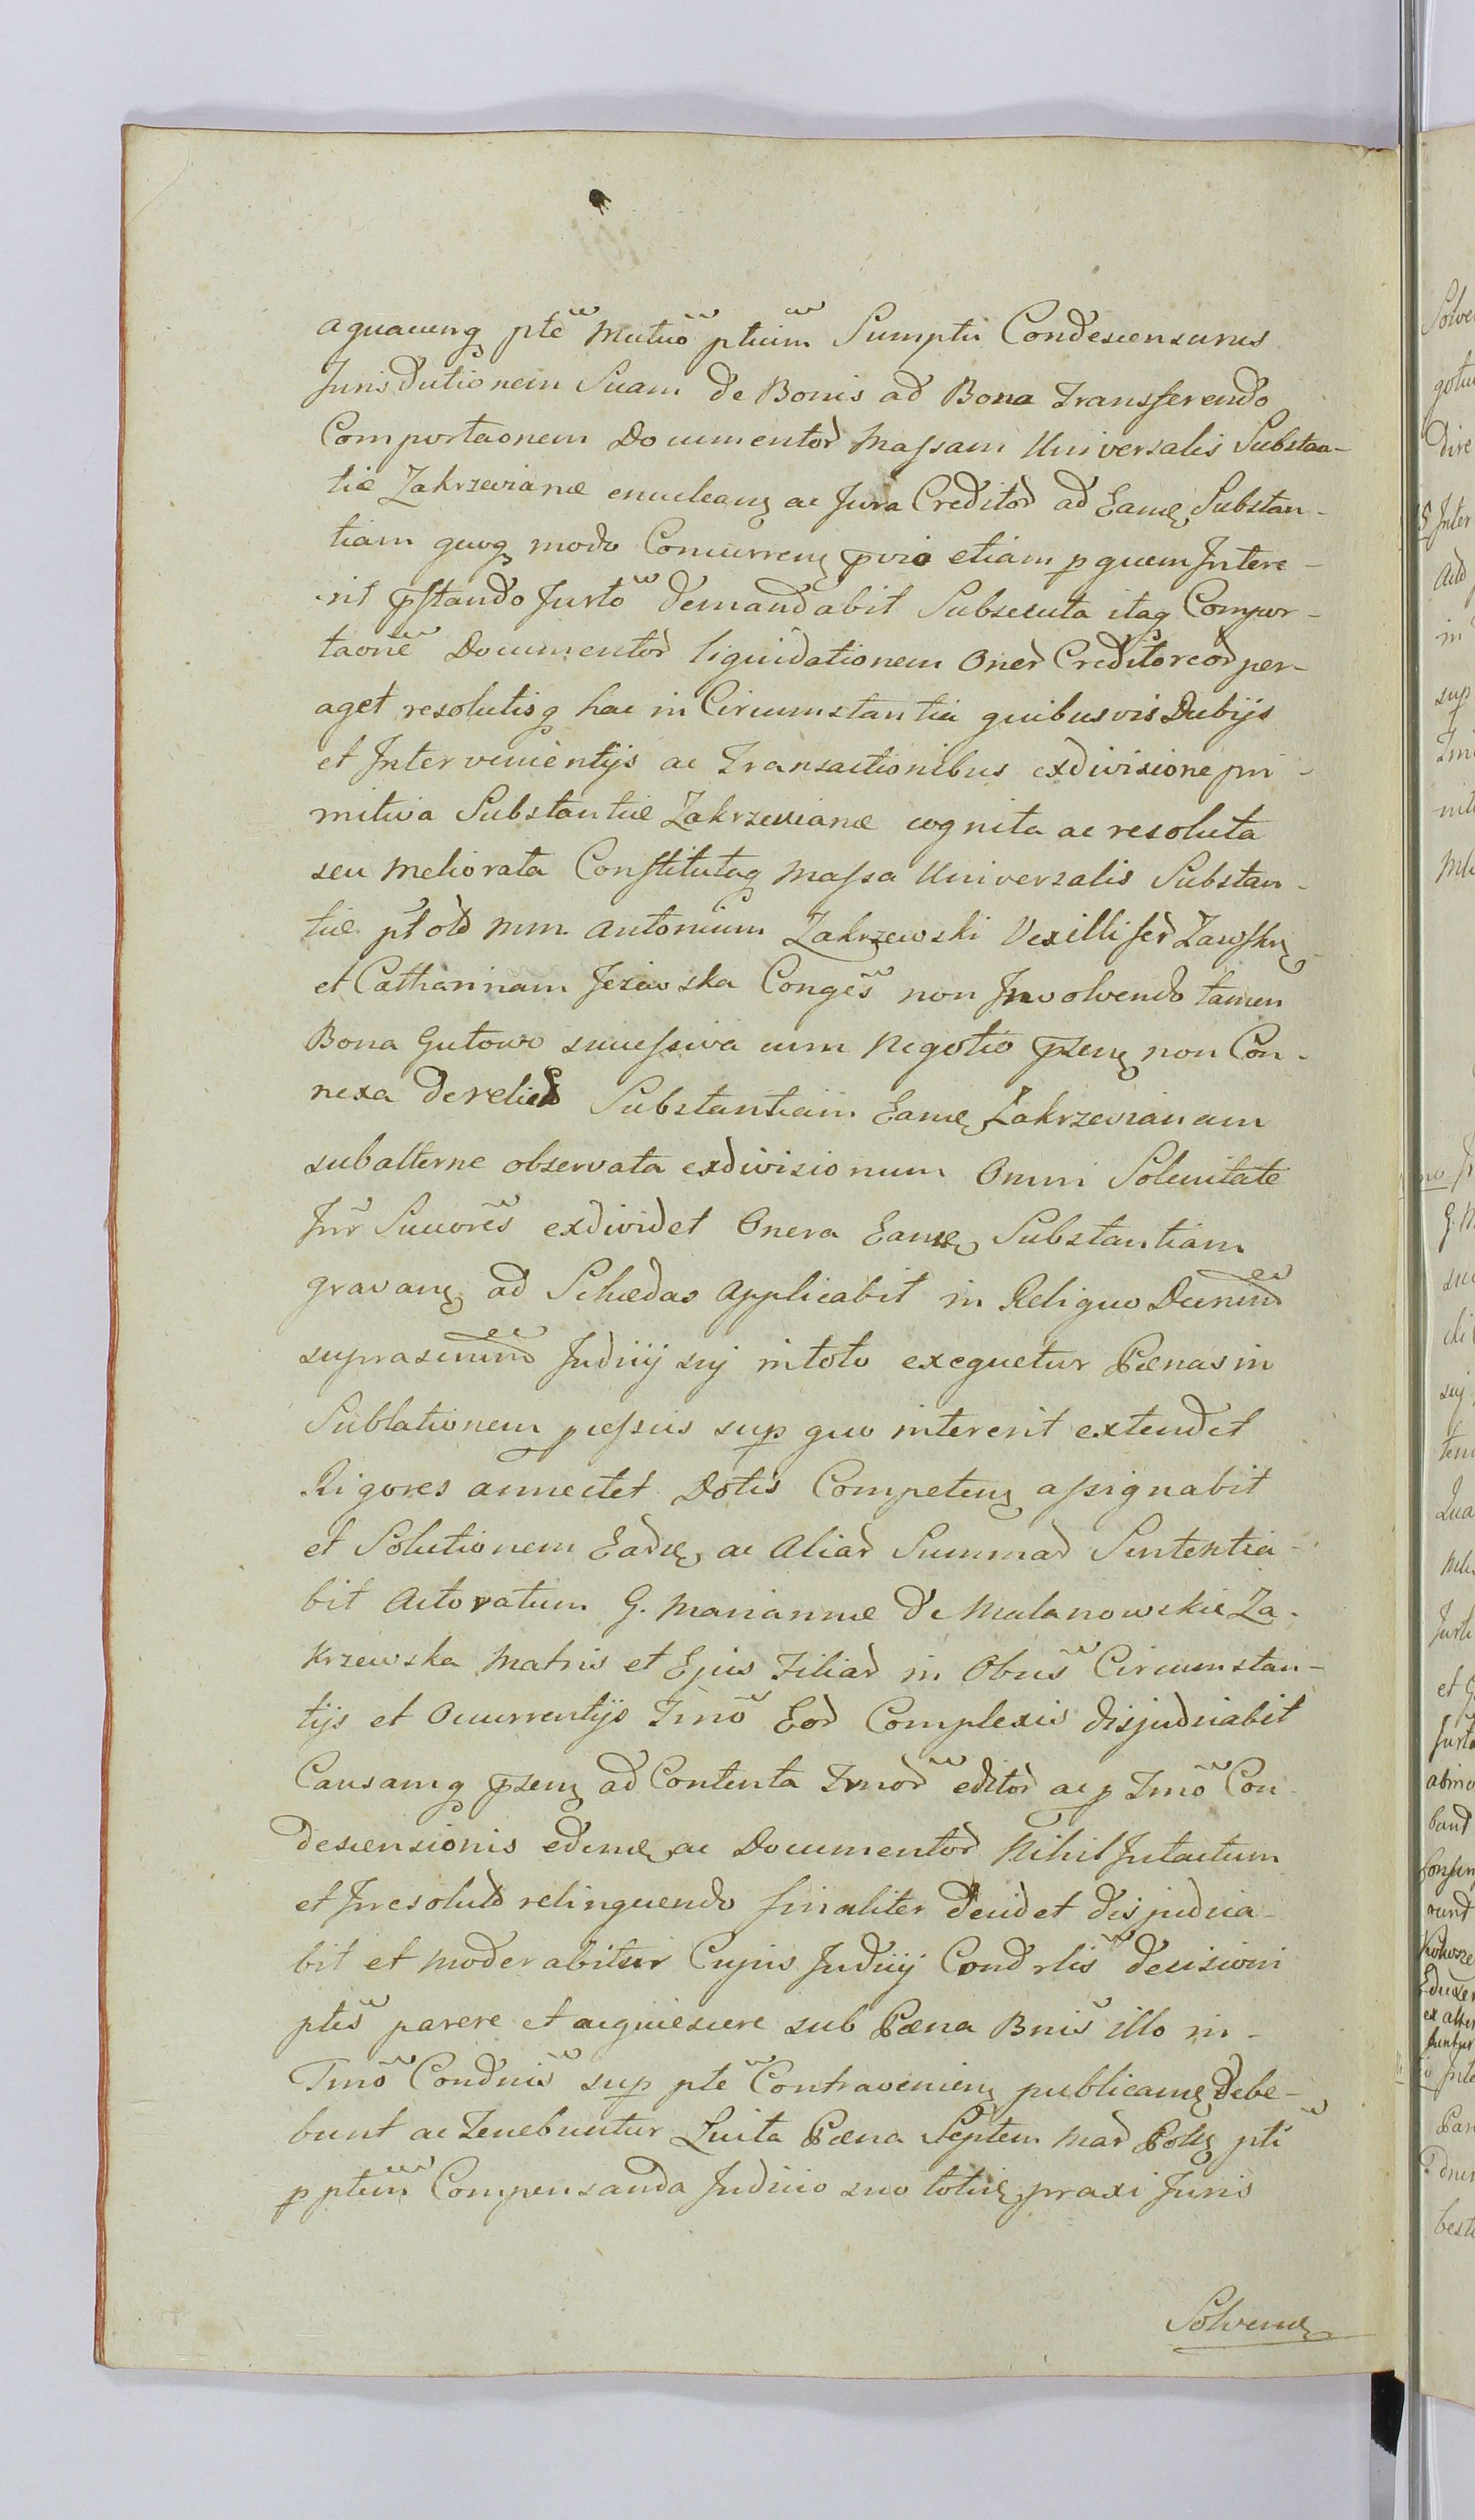 aquacunq pte mutuo ptium Sumptu Condescensurus
Jurisdictionem Suam de Bonis ad Bona Transferendo
Comportaonem Documentor Massam Universalis Substan-
tiæ Zakrzevianæ enucleanӡ ac Jura Creditor ad Eamӡ Substan-
tiam quoq modo Concurrenӡ pvio etiam p quem Intere-
rit pstando Jurto demandabit Subsecuta itaq Compor-
taone Documentor liquidationem Oner Creditoreor per-
aget resolutisq hac in Circumstantia quibusvis Dubijs
et Intervenientijs ac Transactionibus exdivisione pri-
mitiva Substantiæ Zakrzevianæ cognita ac resoluta
seu meliorata Constitutaq Massa Universalis Substan-
tiæ pt old Mm. Antonium Zakrzewski Vexillifer Zawskӡ
et Catharinam Jezewska Conges non Involvendo tamen
Bona Gutowo successiva cum Negotio pzenӡ non Con-
nexa derelict Substantiam Eamӡ Zakrzevianam
subalterne observata exdivisionum Omni Solenitate
Jnr Succores exdividet Onera Eamӡ Substantiam
gravanӡ ad Schedas Applicabit in Reliquo Decrum
suprascrum Judicij sui in toto exequetur Pænas in
Sublationem pcessus sup quo intererit extendet
Rigores annectet Dotis Competenӡ assignabit
et Solutionem Eadӡ ac Aliar Summar Sententia-
bit Actoratum G. Mariannæ de Malanowskie Za-
krzewska Matris et Ejus Filiar in Obus Circumstan-
tijs et Occurrentijs Tmo Eor Complexis disjudicabit
Causamq pzenӡ ad Contenta Tmor editor ac p Tmo Con-
descensionis edenӡ ac Documentor Nihil Intactum
et Irresolut relinquendo finaliter decidet disjudica-
bit et moderabitur Cujus Judicij Condrlis decisioni
ptes parere et acquiescere sub Pæna Bnis illo in-
Tmo Condnis sup pte Contravenienӡ publicanӡ debe-
bunt ac Tenebuntur Luita Pæna Septem Mar Polӡ pti
p ptem Compensanda Judicio suo totiesӡ praxi Juris
Solvenӡ